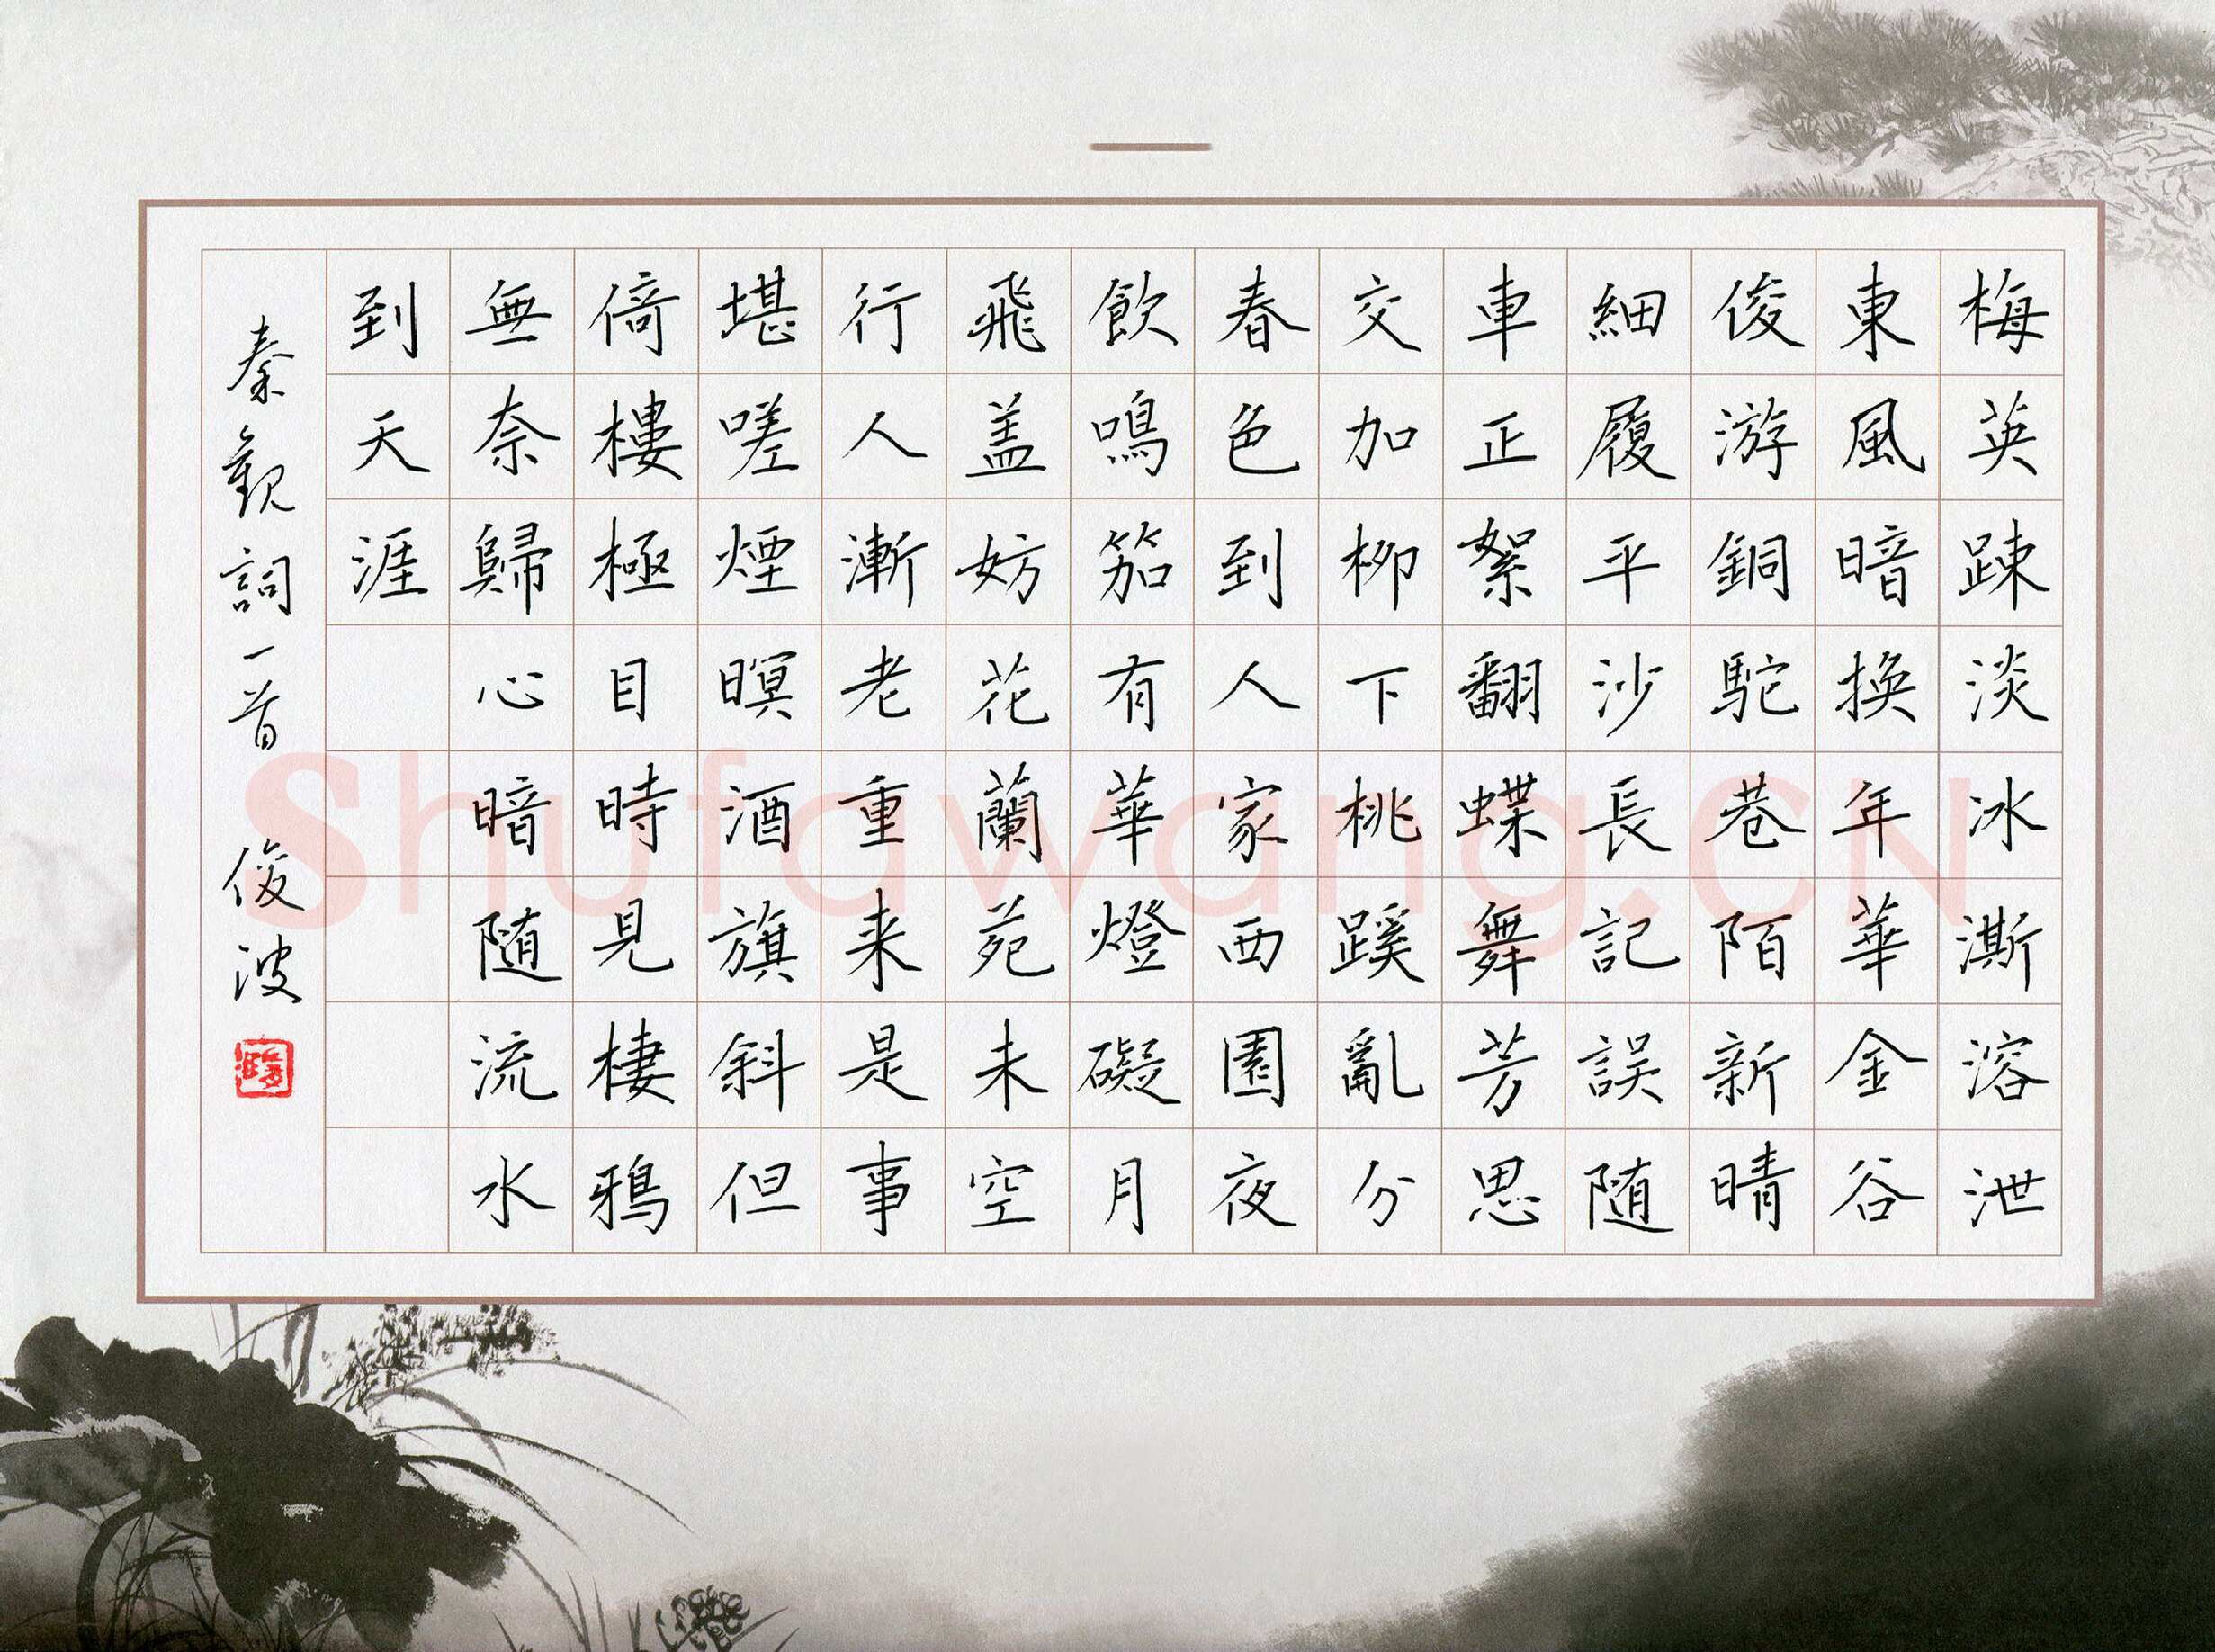 梅英踈淡冰澌溶泄
東風暗換年華金谷
俊游銅駝巷陌新晴
細履平沙長記誤随
車正絮翻蝶舞芳思
交加柳下桃蹊亂分
春色到人家西園夜
飲鳴笳有華燈礙月
飛盖妨花蘭苑未空
行人漸老重来是事
堪嗟煙暝酒旗斜但
倚樓極目時見棲鴉
無奈歸心暗随流水
到天涯
秦觀詞一首 俊波
Shufawang.CN